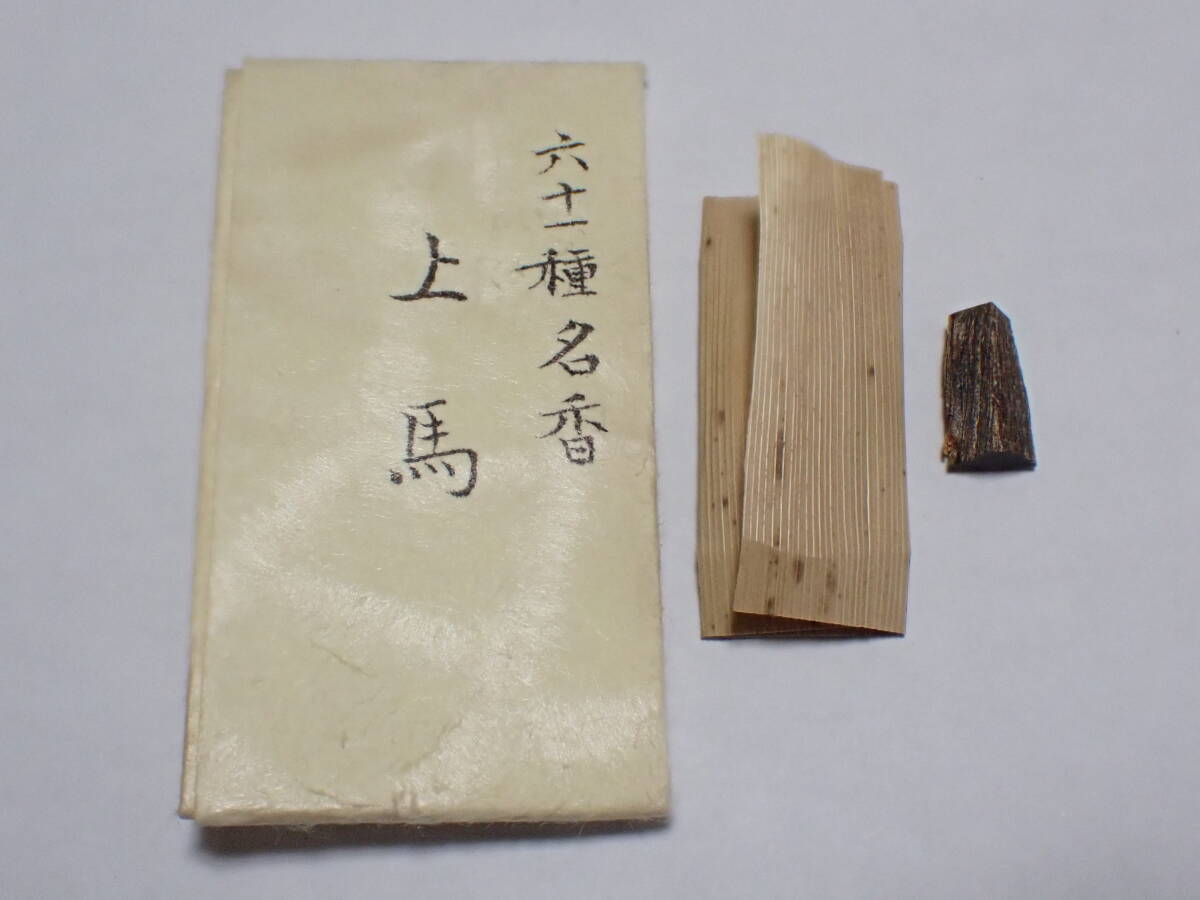 六十一種名香
上馬